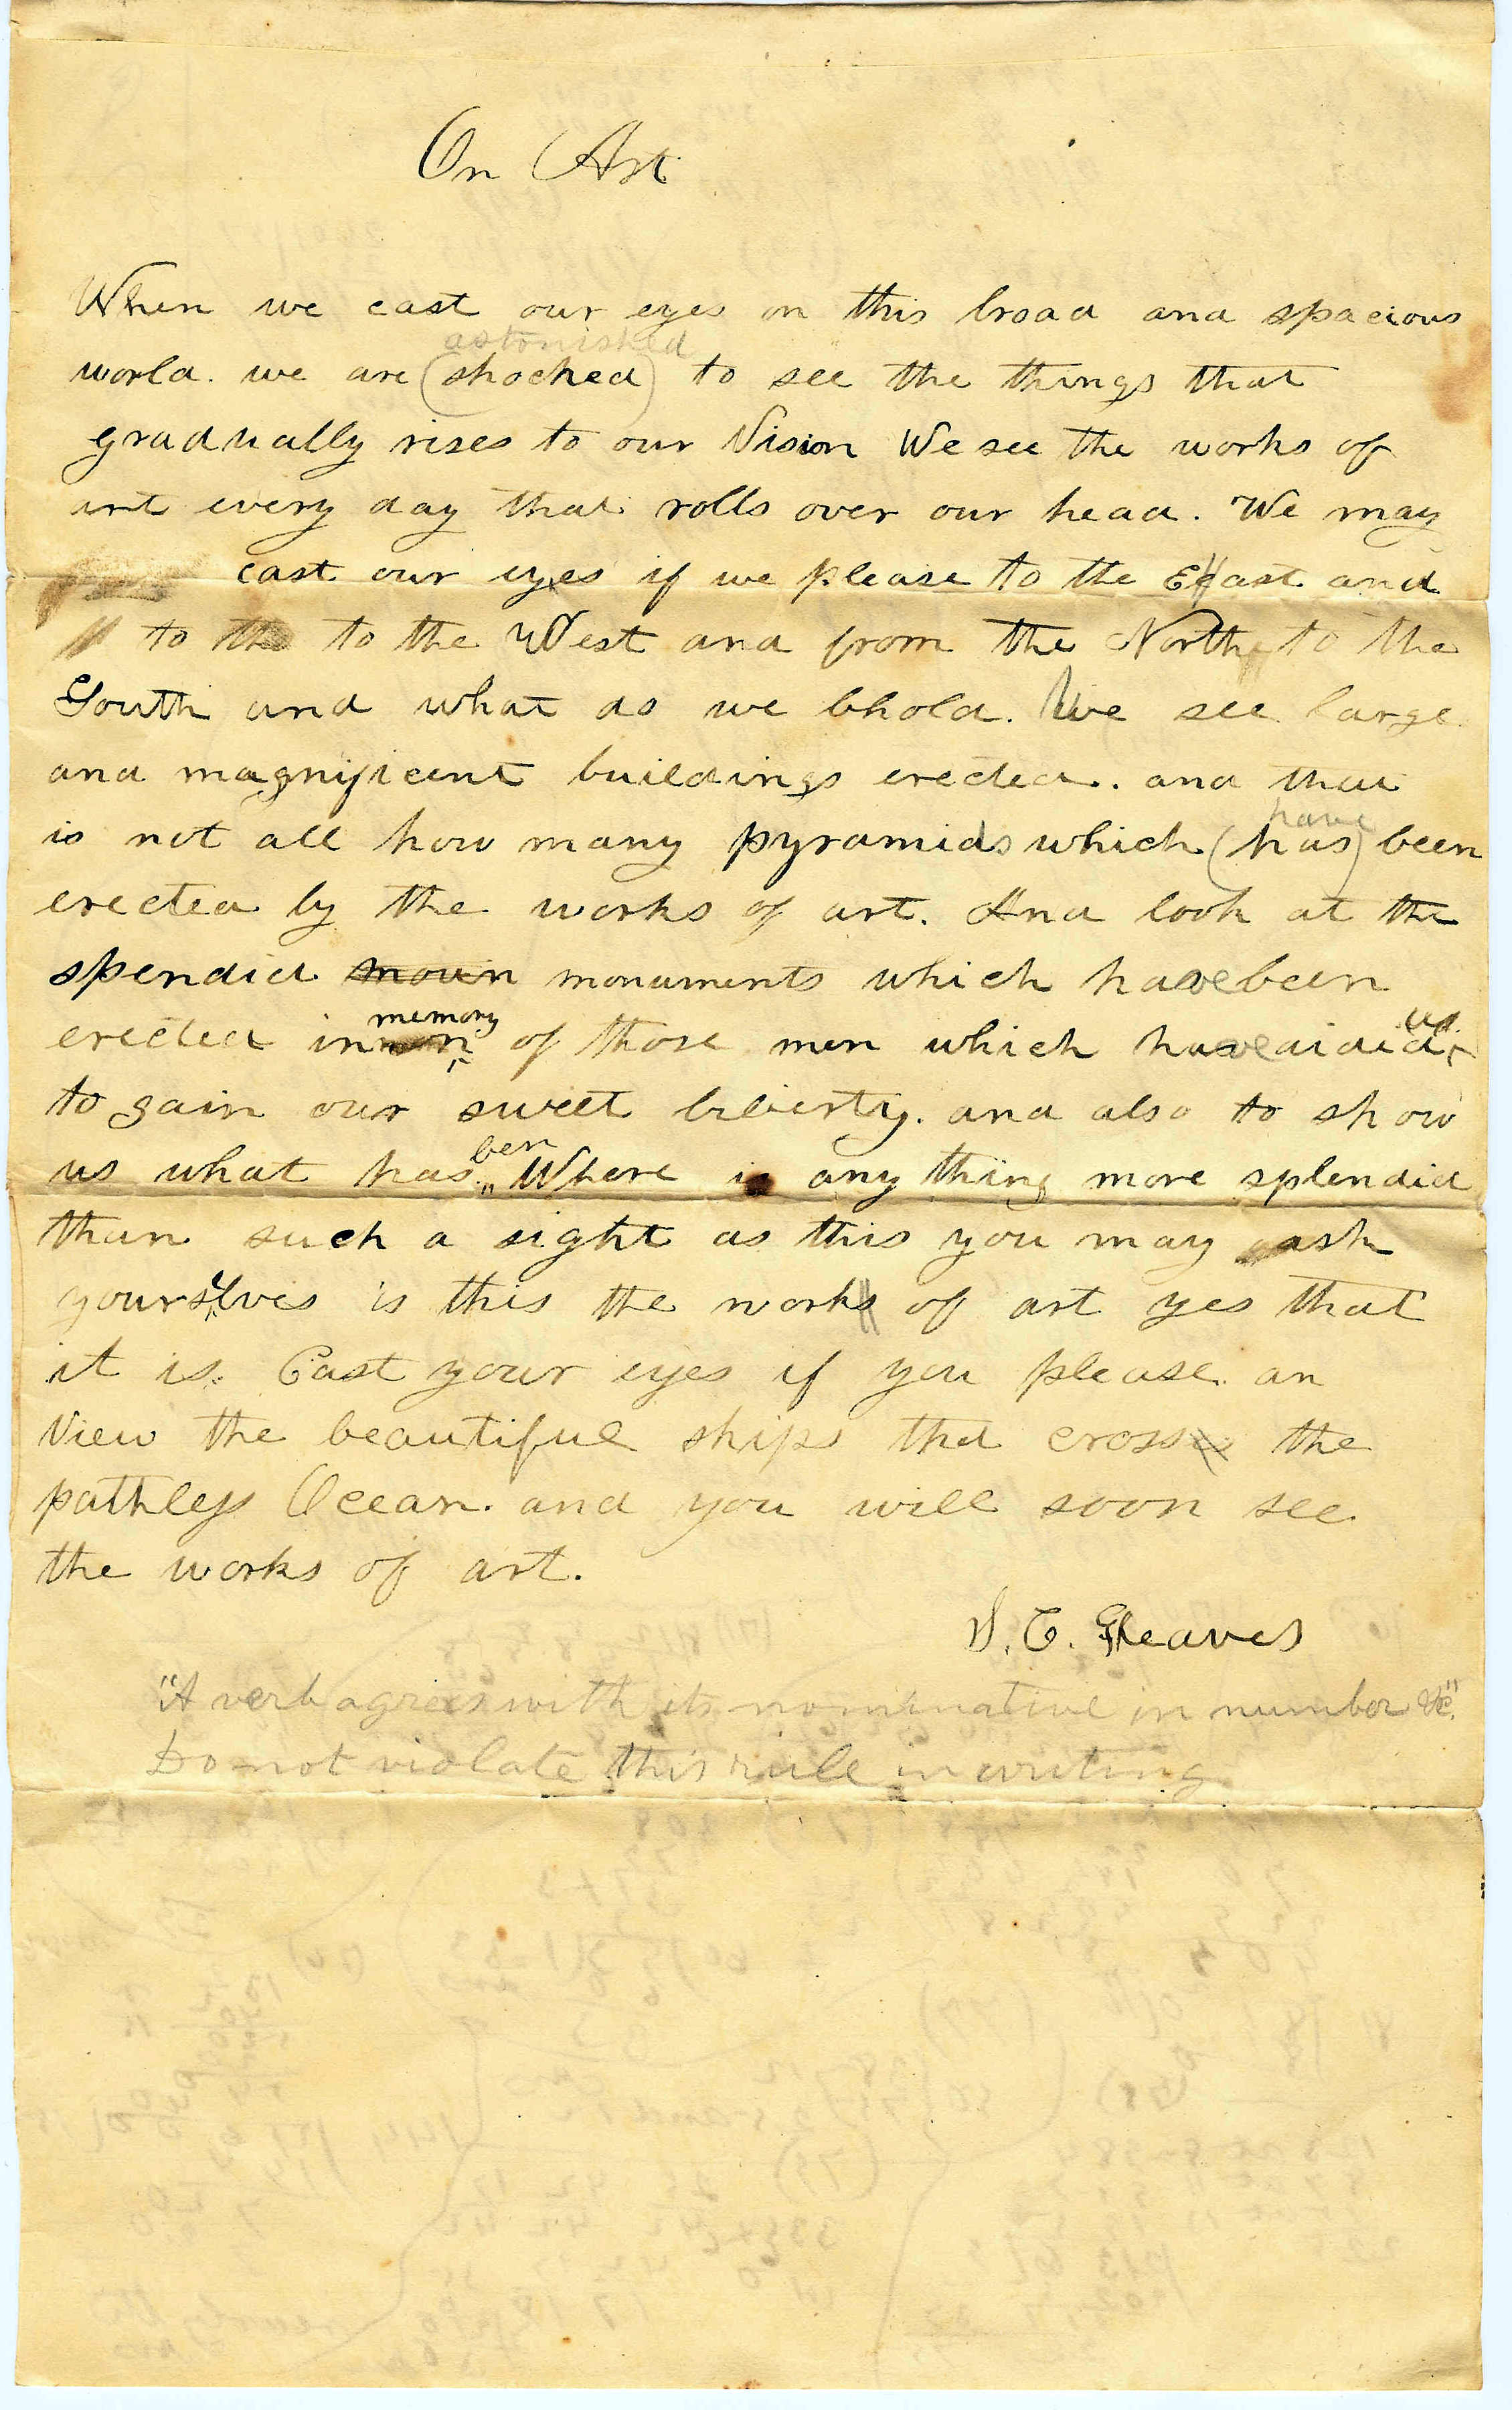 On Art
When we cast our eyes on this broad and spacious
astonished
world. we are (shocked) to see the things that
gradually rises to our Vision We see the works of
art every day that rolls over our head. We may
cast our eyes if we please to the East and
to the to the West and from the North to the
South and what do we bhold. We see large
and magnificent buildings erected. and that
have
is not all how many pyramids which (has) been
erected by the works of art. And look at the
spendid moun monuments which have been
memory us
erected in of those men which have aided
to gain our sweet liberty. and also to show
ben
us what has Where is any thing more splendid
than such a sight as this you may ask
yourselves is this the works of art yes that
it is. Cast your eyes if you please. an
View the beautiful ships that cross the
pathless Ocean. and you will soon see
the works of art.
S. C. Gleaves
"A verb agrees with its nominative in number &c."
Do not violate this rule in writing